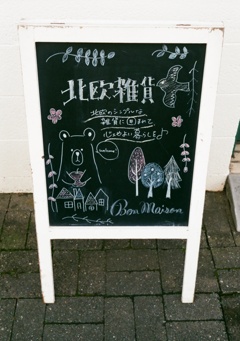 北欧雑貨
北欧のシンプルな
雑貨に囲まれて
心じゃよい暮らしを♪
Bon Maison